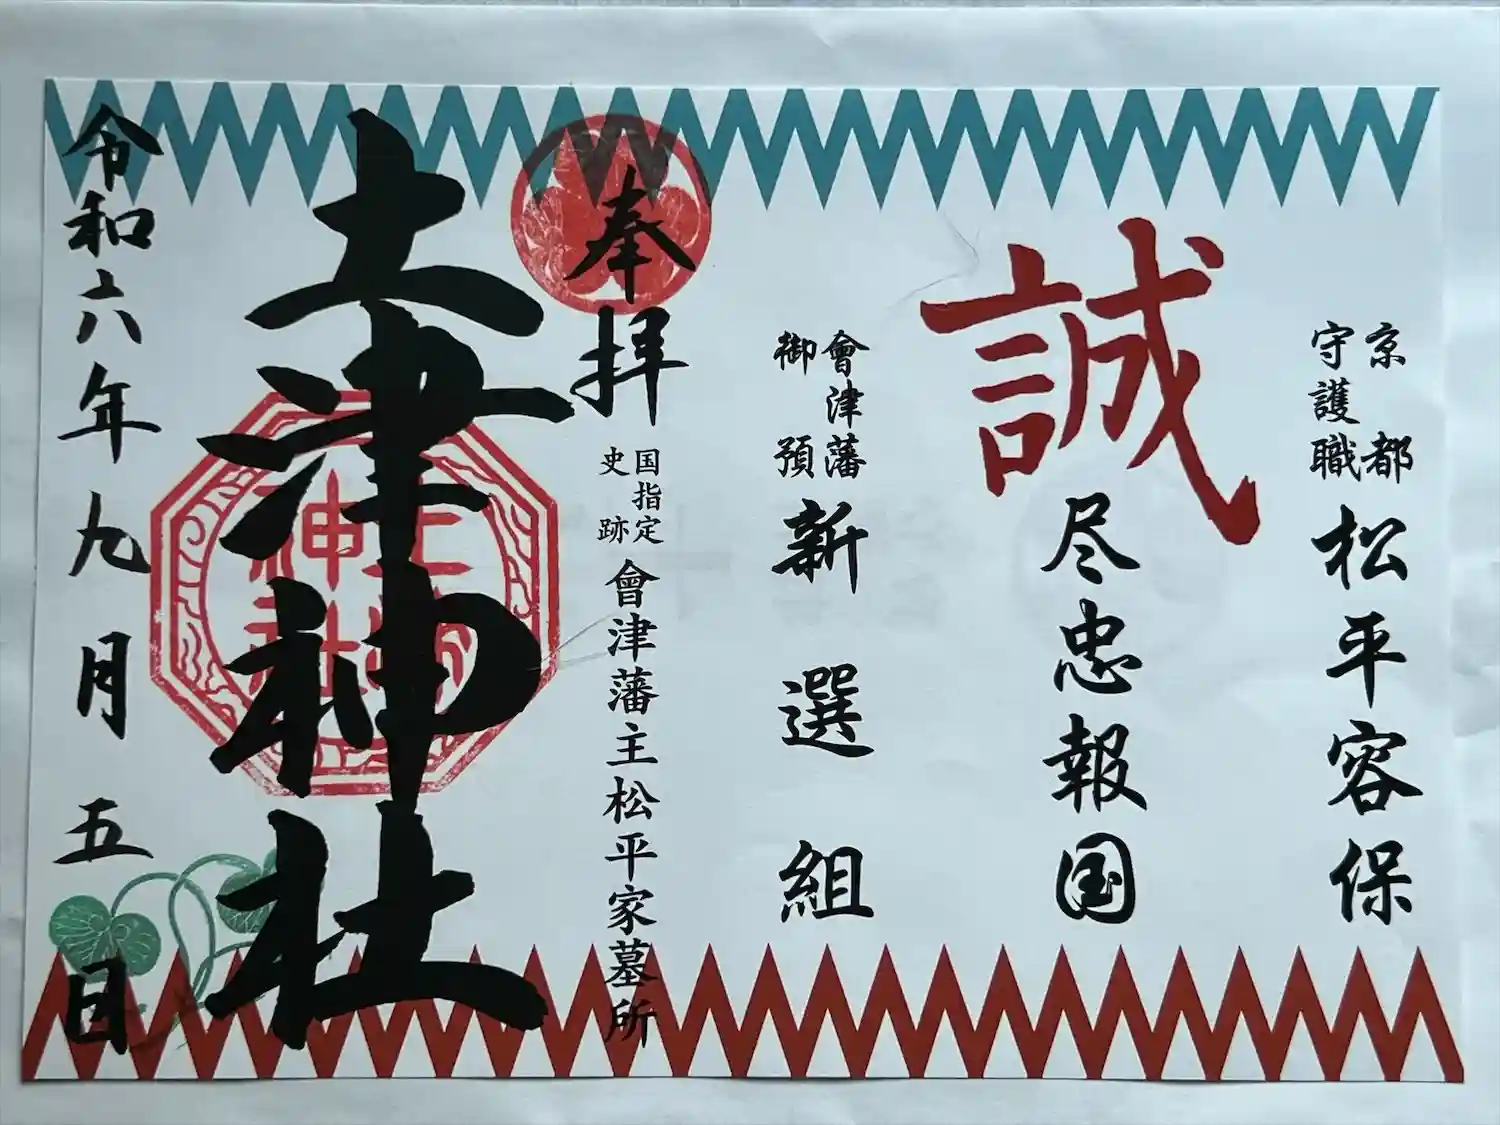 京都
守護職
松平容保
誠
尽忠報国
會津藩
御預
新選組
奉拝
国指定
史跡
會津藩主松平家墓所
土津神社
土津
神社
令和六年九月五日